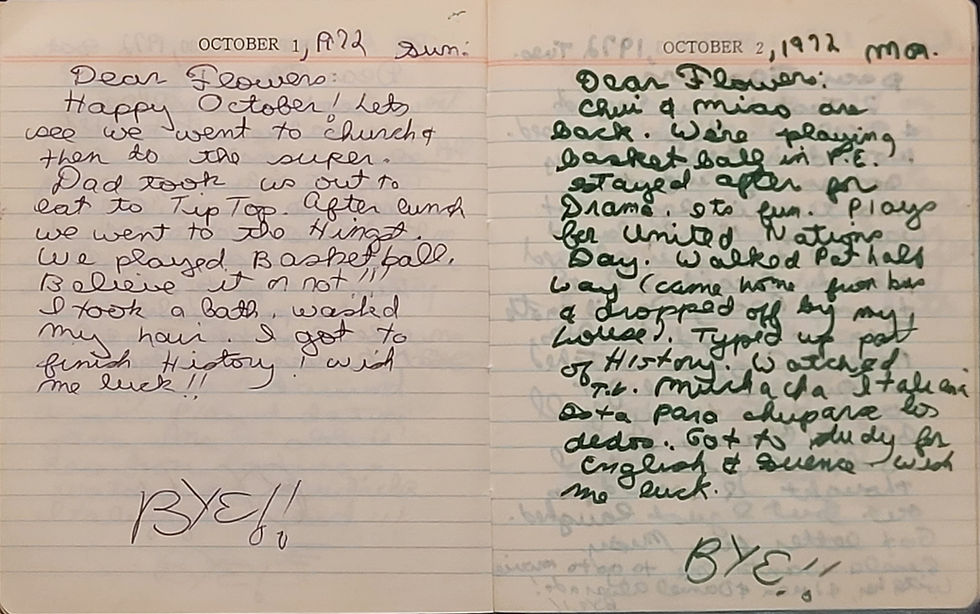 OCTOBER 1, 1972 Sun.
Dear Flowers:
Happy October! Lets
see we went to church &
then to the super.
Dad took us out to
eat to Tip Top. After lunch
we went to the Hingst.
We played Basketball.
Believe it or not!!
I took a bath, washed
my hair. I got to
finish History! wish
me luck!!
BYE!!
OCTOBER 2, 1972 Mon.
Dear Flowers:
Chui & Miao are
back. We're playing
basket ball in P.E.
stayed after for
Drama. its fun. Plays
for United Nations
Day. Walked Pat half
way (came home from bus
& dropped off by my
house). Typed up part
of History. Watched
T.V. Muchacha Italiana
Esta para chuparse los
dedos. Got to study for
English & Science wish
me luck.
BYE!!